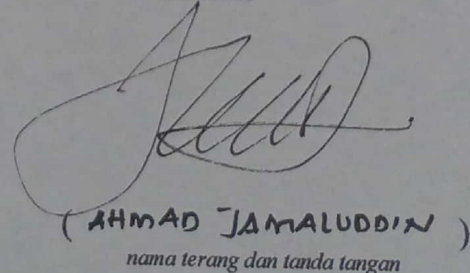 ( AHMAD JAMALUDDIN )
nama terang dan tanda tangan